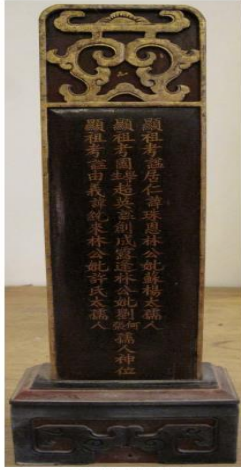 顯祖考諡居仁諱珠恩林公妣蘇楊太孺人
顯祖考國學超英諡創成諱達林公妣劉何張孺人神位
顯祖考諡由義諱銳來林公妣許氏太孺人